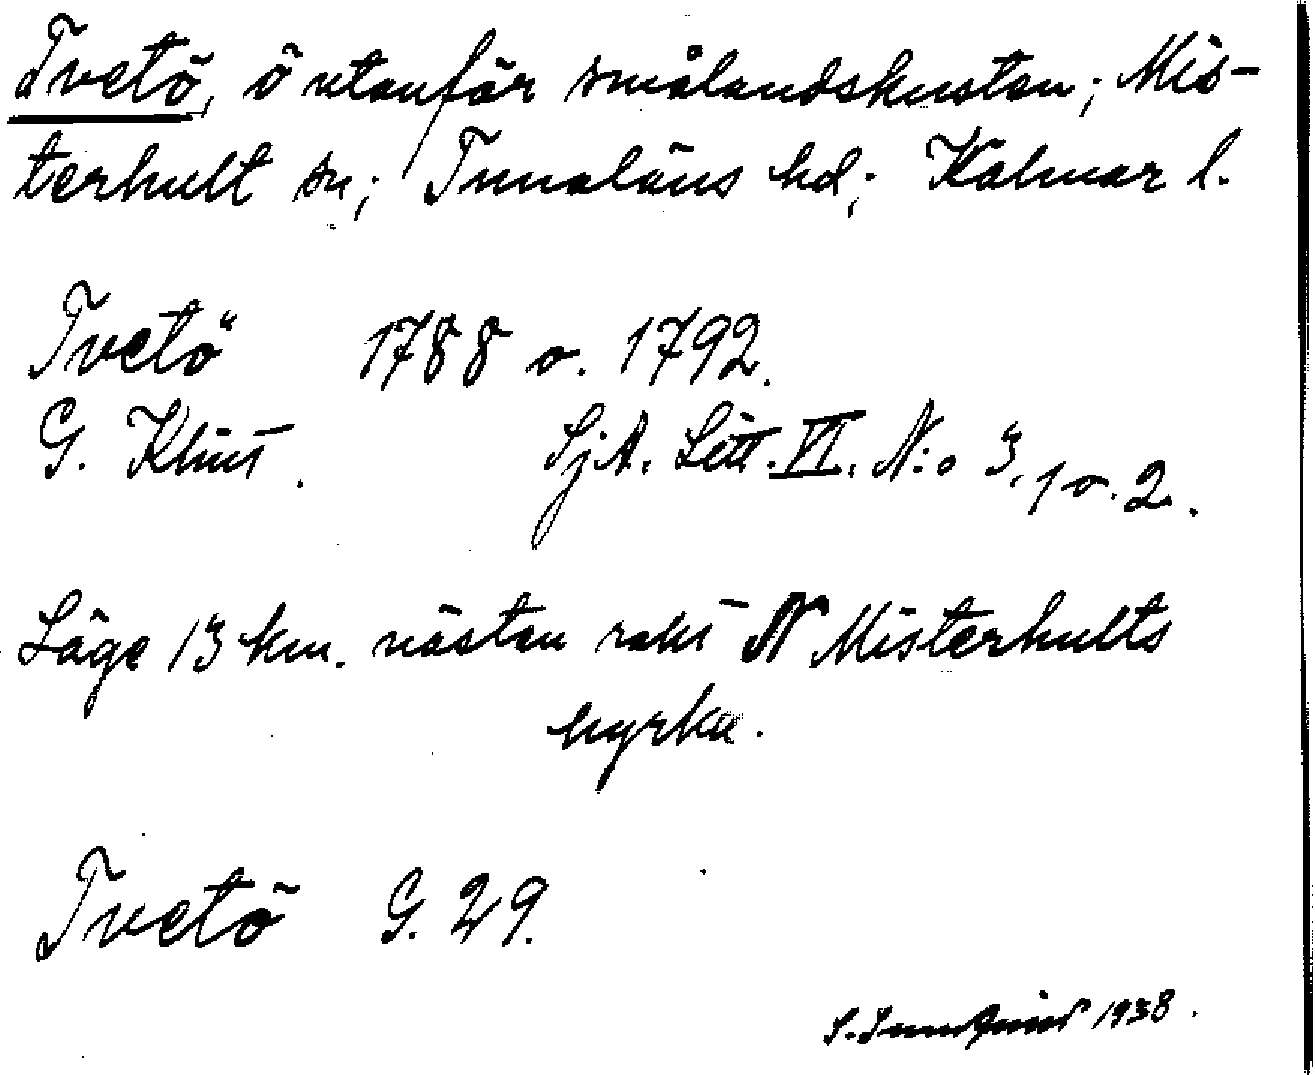 Tvetö, ö utanför smålandskusten; Mis-
terhult sn; Tunaläns hd; Kalmar l.
Tvetö 1788 o. 1792.
G. Klint. SjA. Litt. VI. N:o 3, 1 o. 2.
Läge 13 km. nästan rakt N Misterhults
kyrka.
Tvetö G. 29.
1938.